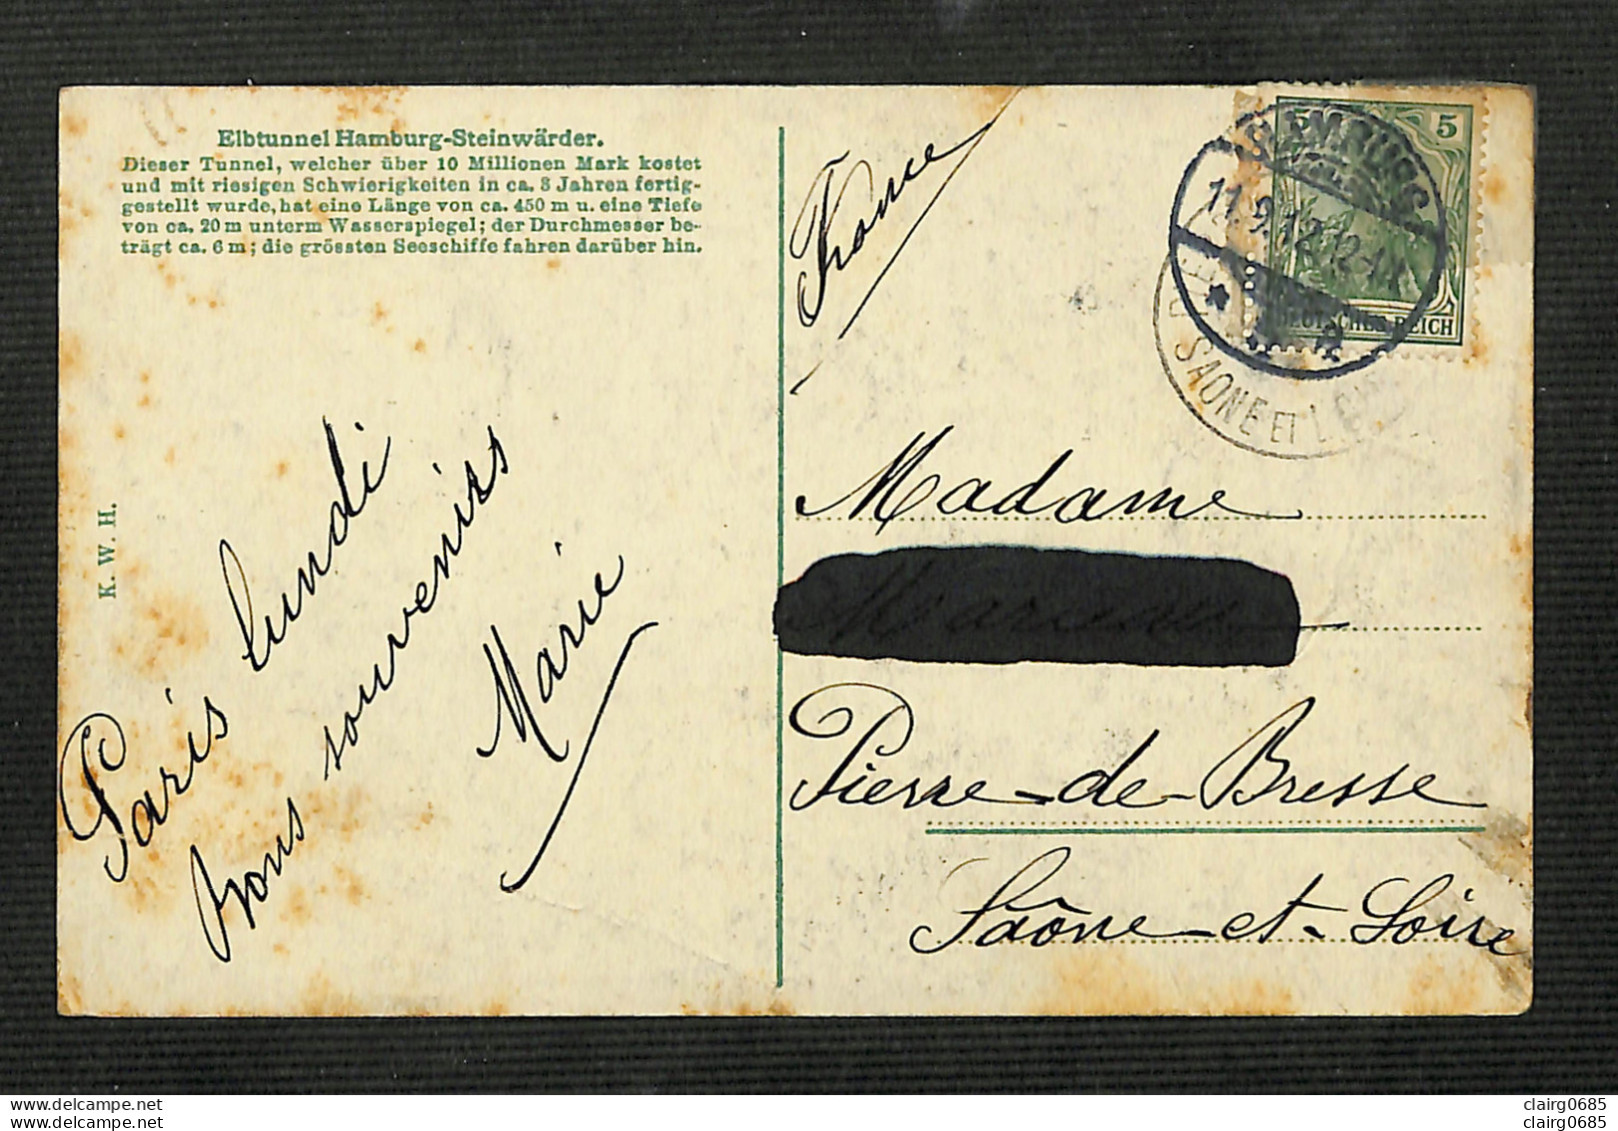 Elbtunnel Hamburg-Steinwärder.
Dieser Tunnel, welcher über 10 Millionen Mark kostet
und mit riesigen Schwierigkeiten in ca. 3 Jahren fertig-
gestellt wurde, hat eine Länge von ca. 450 m u. eine Tiefe
von ca. 20 m unterm Wasserspiegel; der Durchmesser be-
trägt ca. 6 m; die grössten Seeschiffe fahren darüber hin.
K. W. H.
Paris lundi
bons souvenirs
Marie
France
5
HAMBURG
11.9.12.12-1
DEUTSCHES REICH
SAONE ET L
Madame
Pierre-de-Bresse
Saône-et-Loire
clairg0685
clairg0685
clairg0685
clairg0685